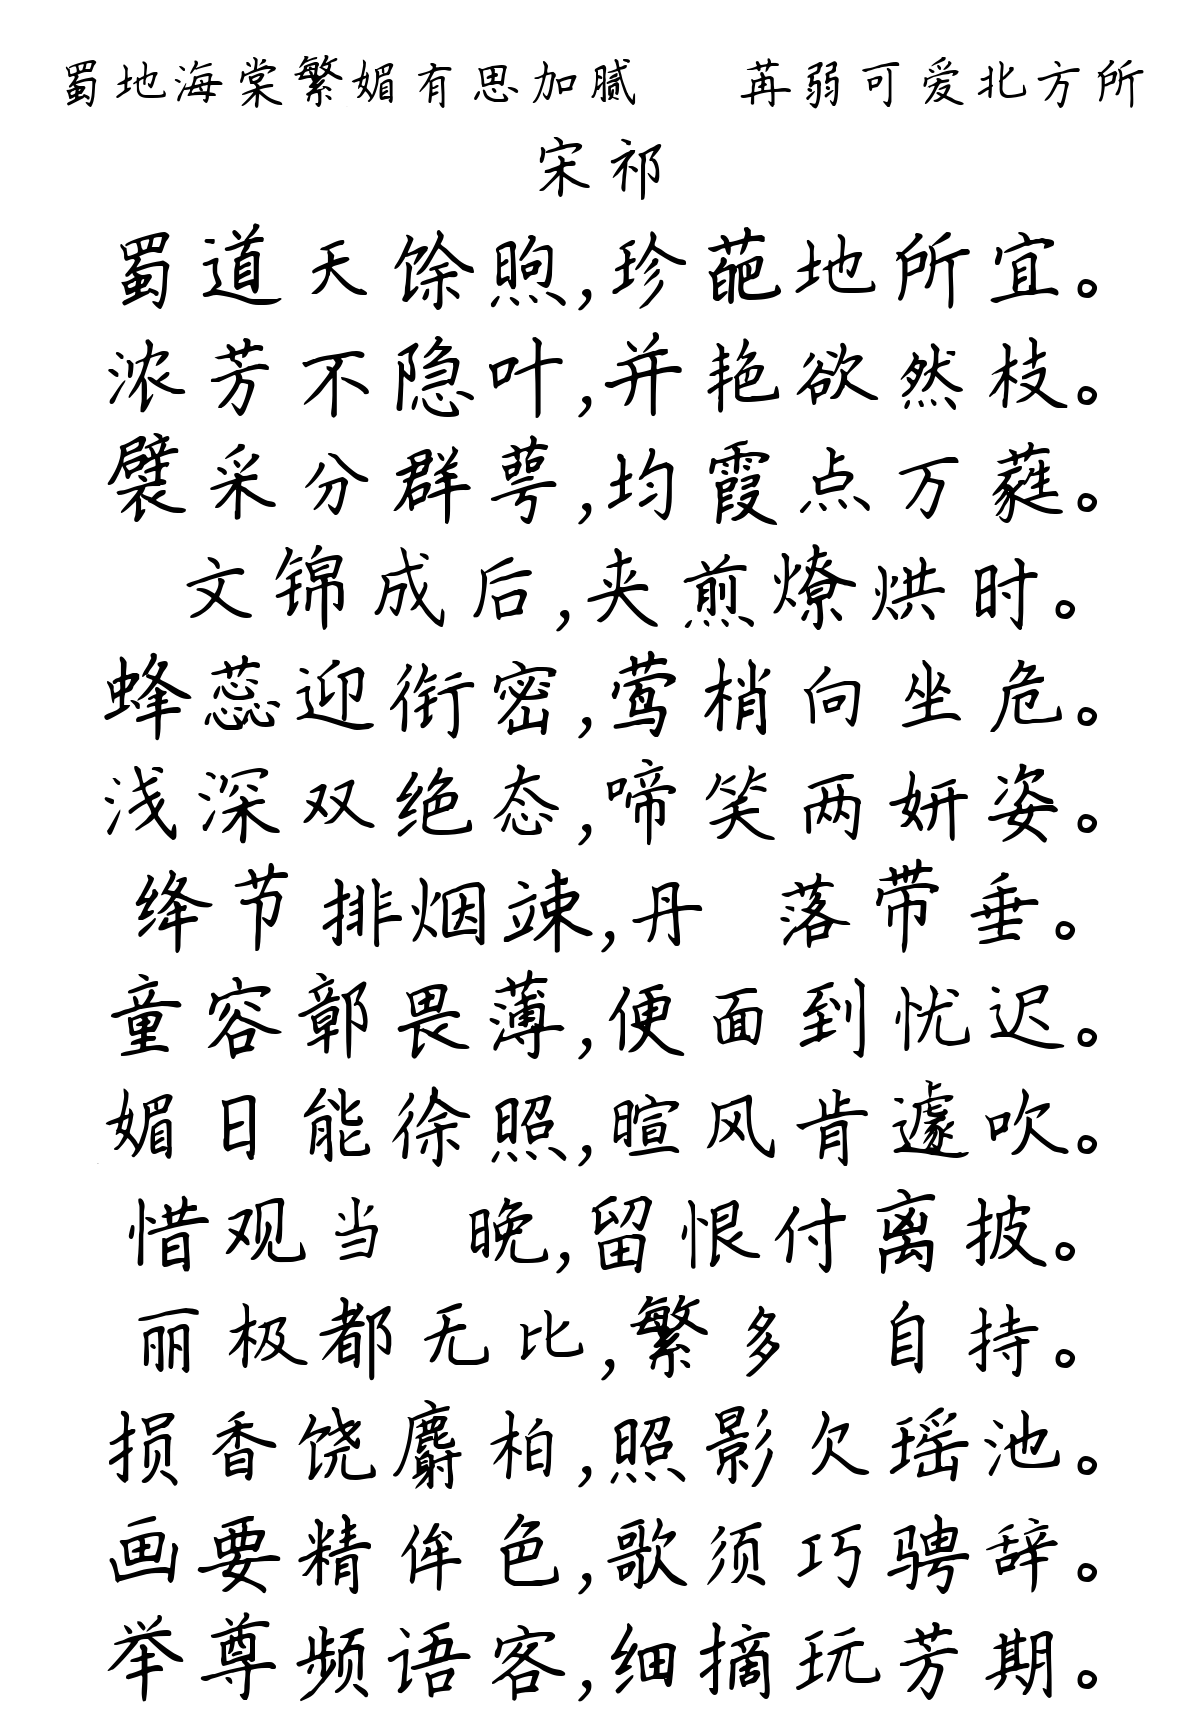 蜀地海棠繁媚有思加腻 苒弱可爱北方所
宋祁
蜀道天馀煦,珍葩地所宜。
浓芳不隐叶,并艳欲然枝。
襞采分群萼,均霞点万蕤。
文锦成后,夹煎燎烘时。
蜂蕊迎衔密,莺梢向坐危。
浅深双绝态,啼笑两妍姿。
绛节排烟竦,丹 落带垂。
童容鄣畏薄,便面到忧迟。
媚日能徐照,暄风肯遽吹。
惜观当 晚,留恨付离披。
丽极都无比,繁多 自持。
损香饶麝柏,照影欠瑶池。
画要精侔色,歌须巧骋辞。
举尊频语客,细摘玩芳期。